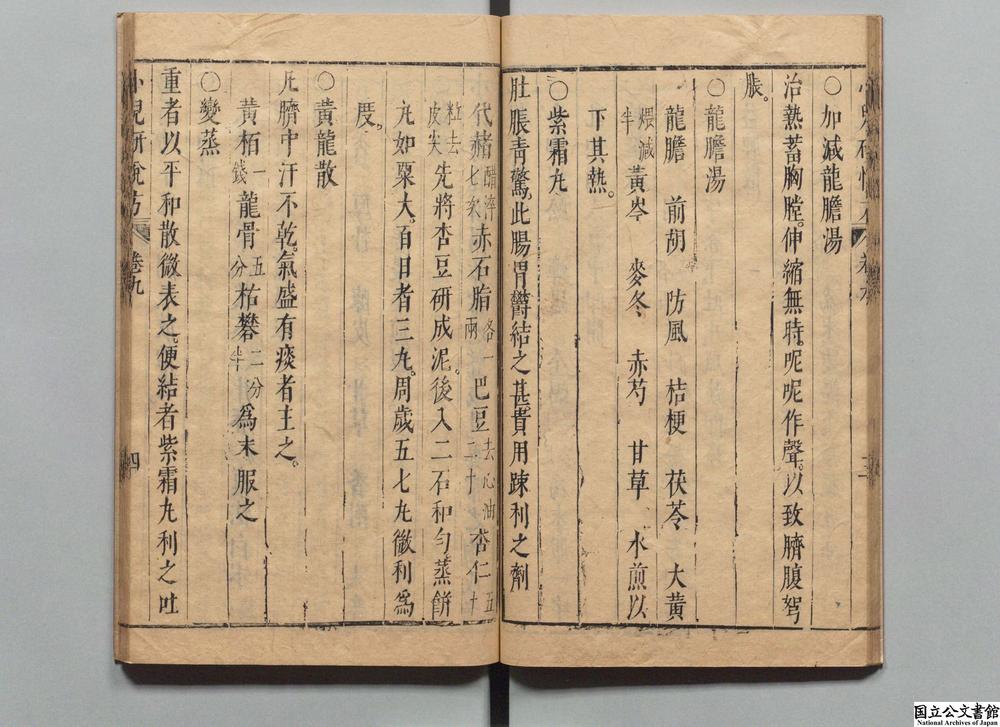 〇加減龍膽湯
治熱蓄胸膛。伸縮無時。呢呢作聲。以致臍腹
脹。
〇龍膽湯
龍膽 前胡 防風 桔梗 茯苓 大黄
煨減半 黄岑 麥冬 赤芍 甘草 水煎以
下其熱。
〇紫霜丸
肚脹青驚。此腸胃欝結之甚。貴用踈利之劑
代赭醋淬七次 赤石脂各一兩 巴豆去心油二十 杏仁五十
粒去皮尖 先將杏豆研成泥。後入二石和匀蒸餅
丸如粟大。百日者三丸。周歲五七丸。微利爲
度。
〇黄龍散
兀臍中汗不乾。氣盛有痰者主之。
黄栢一錢 龍骨五分 枯礬二分半 爲末服之
〇變蒸
重者以平和散微表之。便結者紫霜丸利之。吐
小兒研 方 卷九 四
国立公文書館
National Archives of Japan